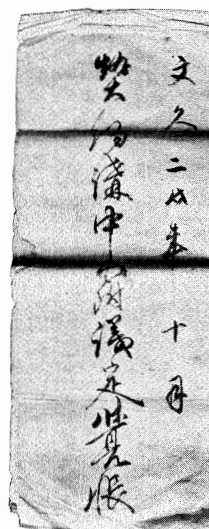 文久二戌年 十月
講中議定覚帳